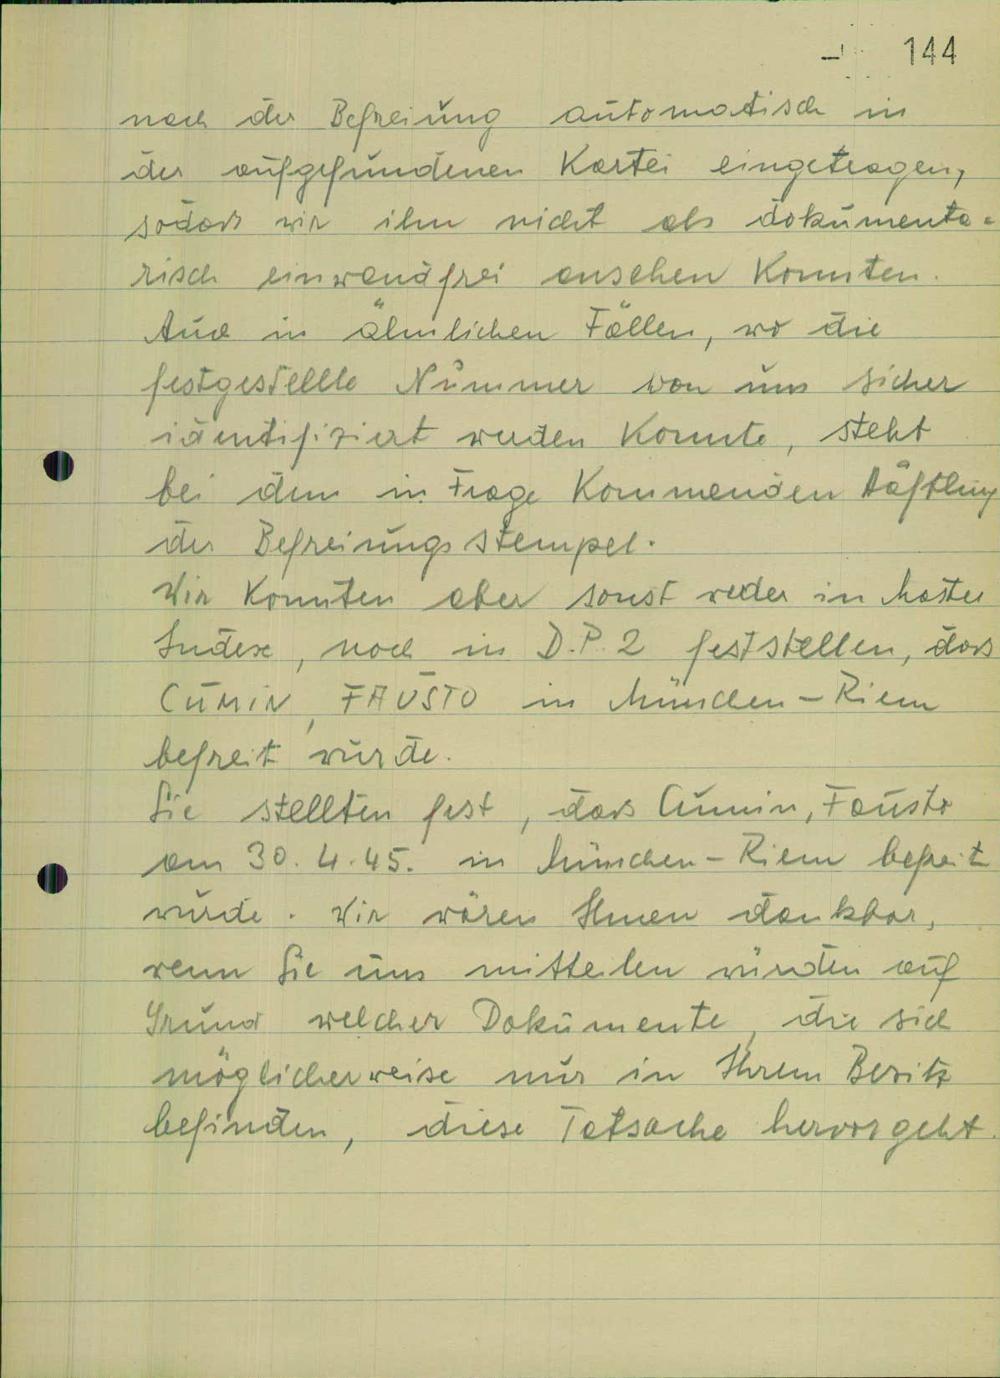 144
nach der Befreiung automatisch in
der aufgefundenen Kartei eingetragen,
sodass wir ihn nicht als dokumenta=
risch einwandfrei ansehen konnten.
Auch in ähnlichen Fällen, wo die
festgestellte Nummer von uns sicher
identifiziert werden konnte, steht
bei dem in Frage kommenden Häftling
der Befreiungsstempel.
Wir konnten aber sonst weder in Master
Index, noch in D.P.2 feststellen, dass
CUMIN, FAUSTO in München-Riem
befreit wurde.
Sie stellten fest, dass Cumin, Fausto
am 30.4.45. in München-Riem befreit
wurde. Wir wären Ihnen dankbar,
wenn Sie uns mitteilen würden auf
Grund welcher Dokumente, die sich
möglicherweise nur in Ihrem Besitz
befinden, diese Tatsache hervorgeht.